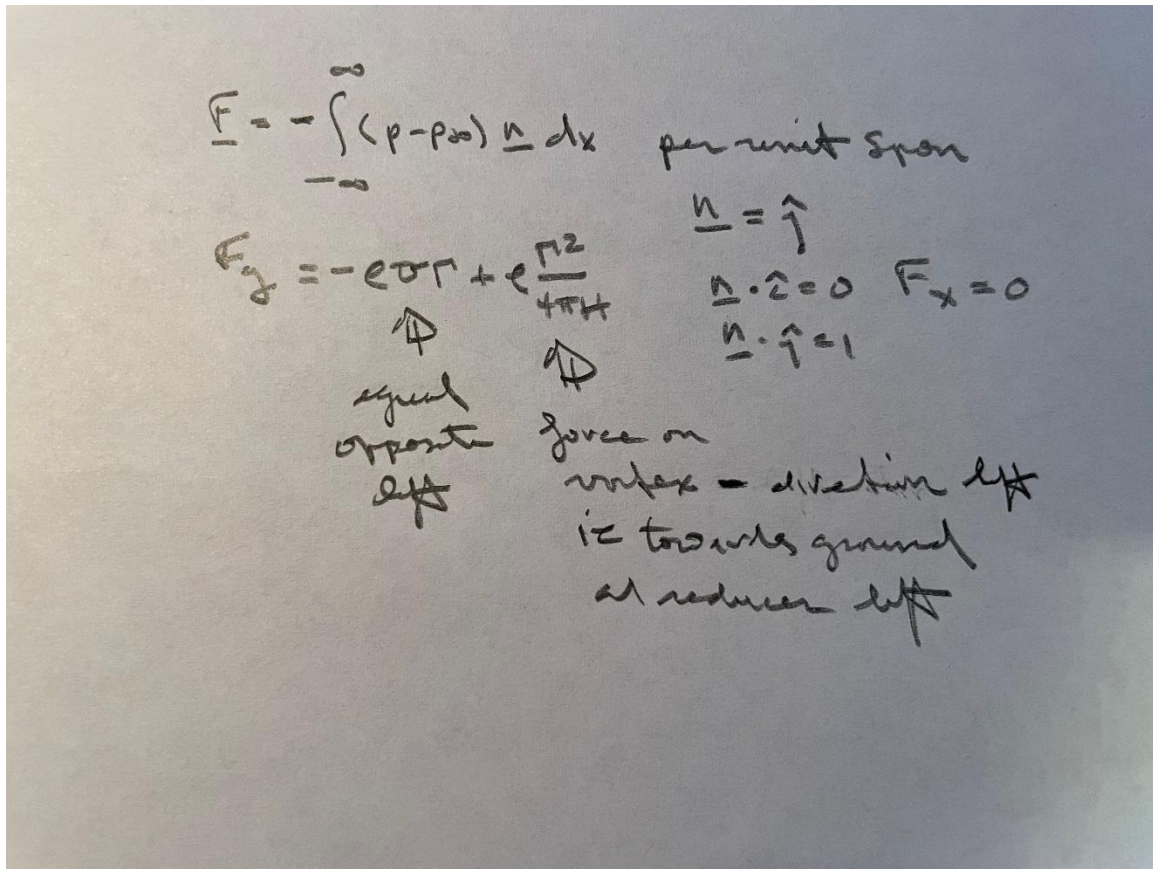 F = - ∫_{-∞}^{∞} (p-p∞) n dx per unit span
n = ĵ
F_y = -ρUΓ + ρ Γ²/4πH
n · î = 0 F_x = 0
n · ĵ = 1
equal
opposite
lift
force on
vortex - direction lift
ie towards ground
reduces lift